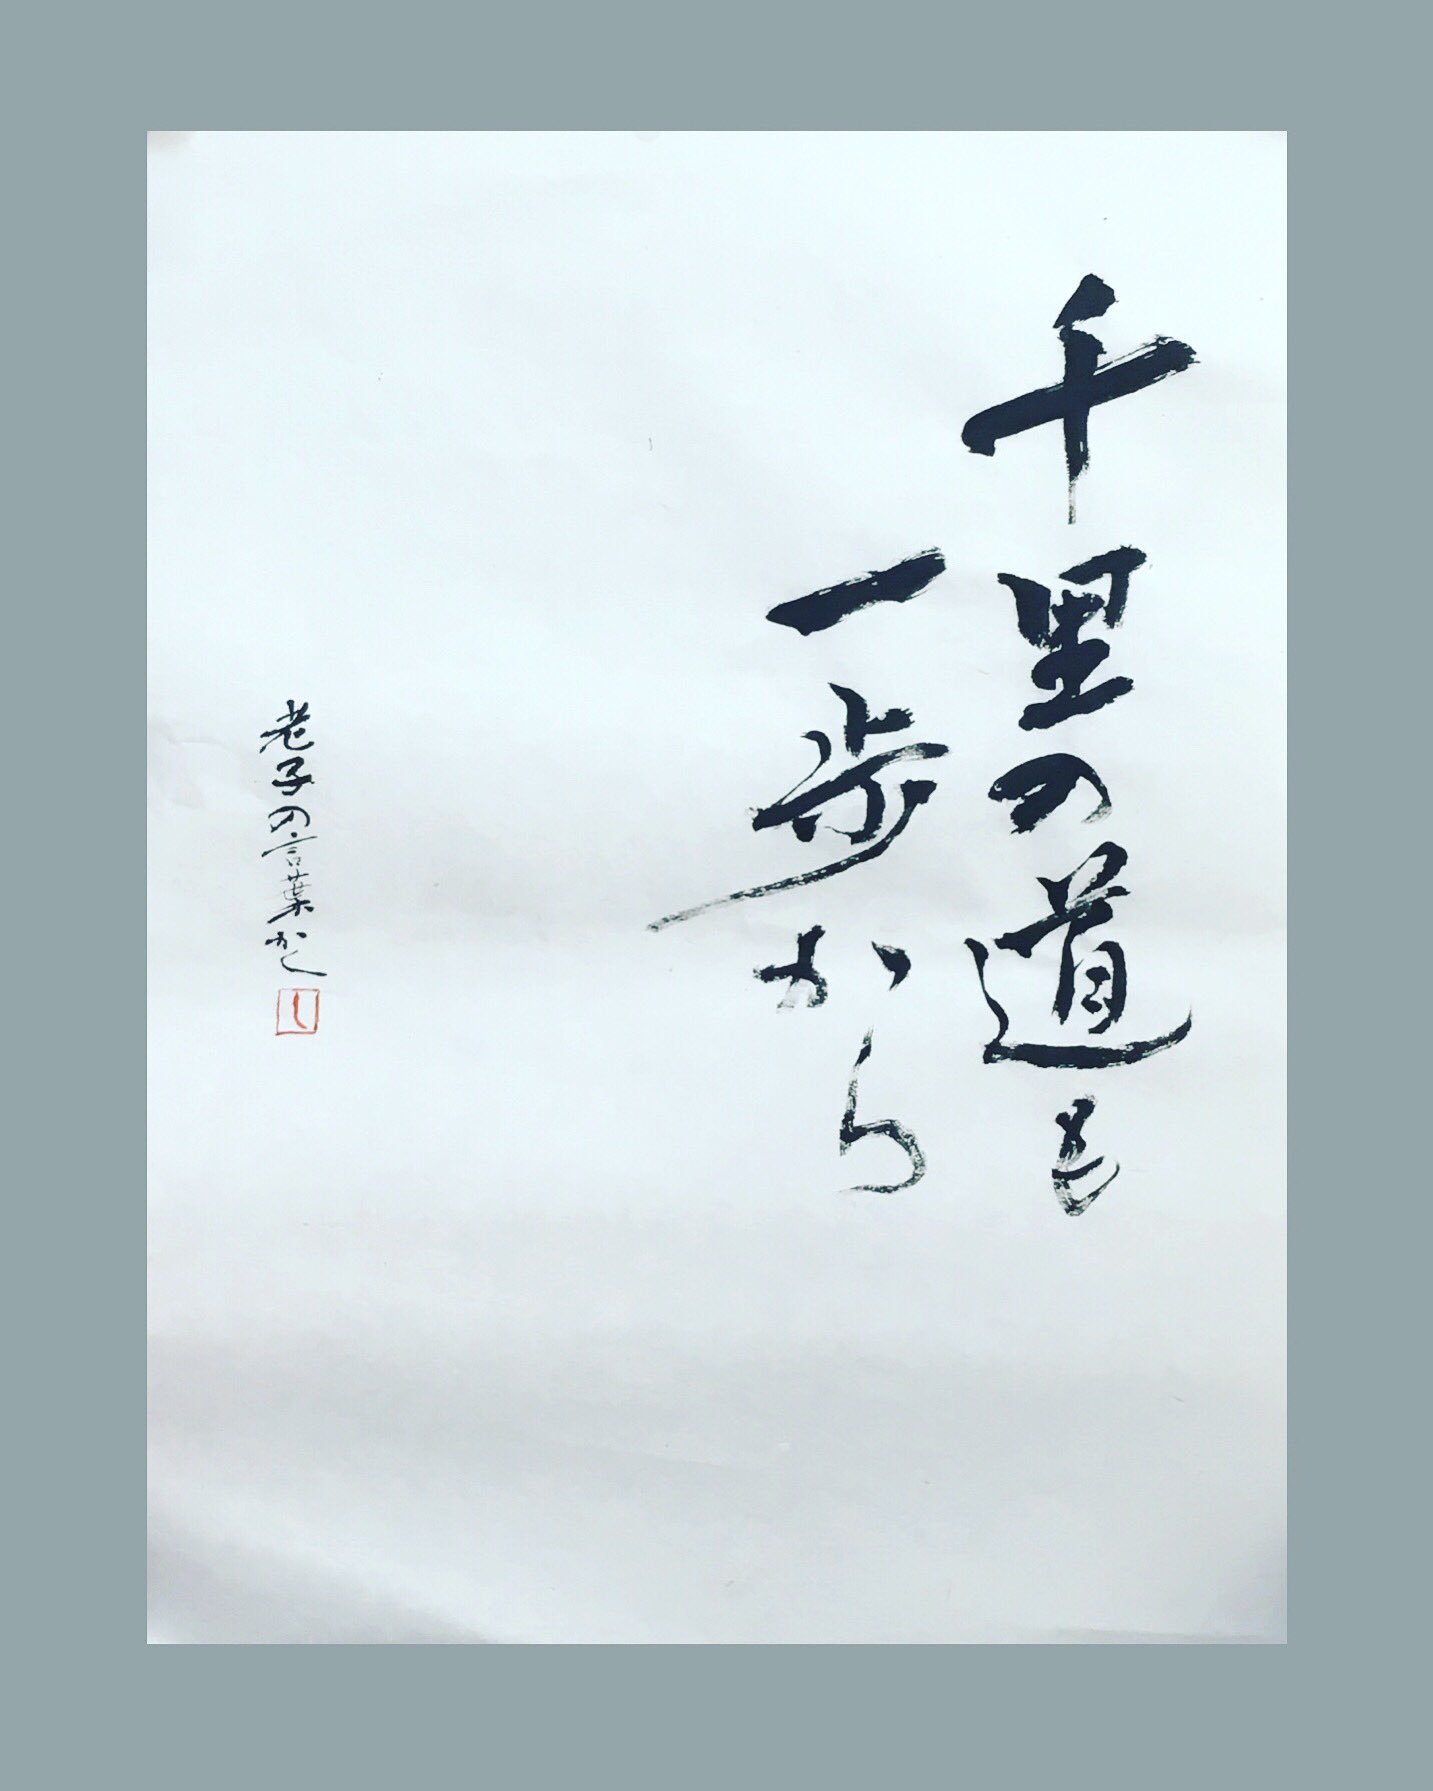 千里の道も
一歩から
老子の言葉かく
し